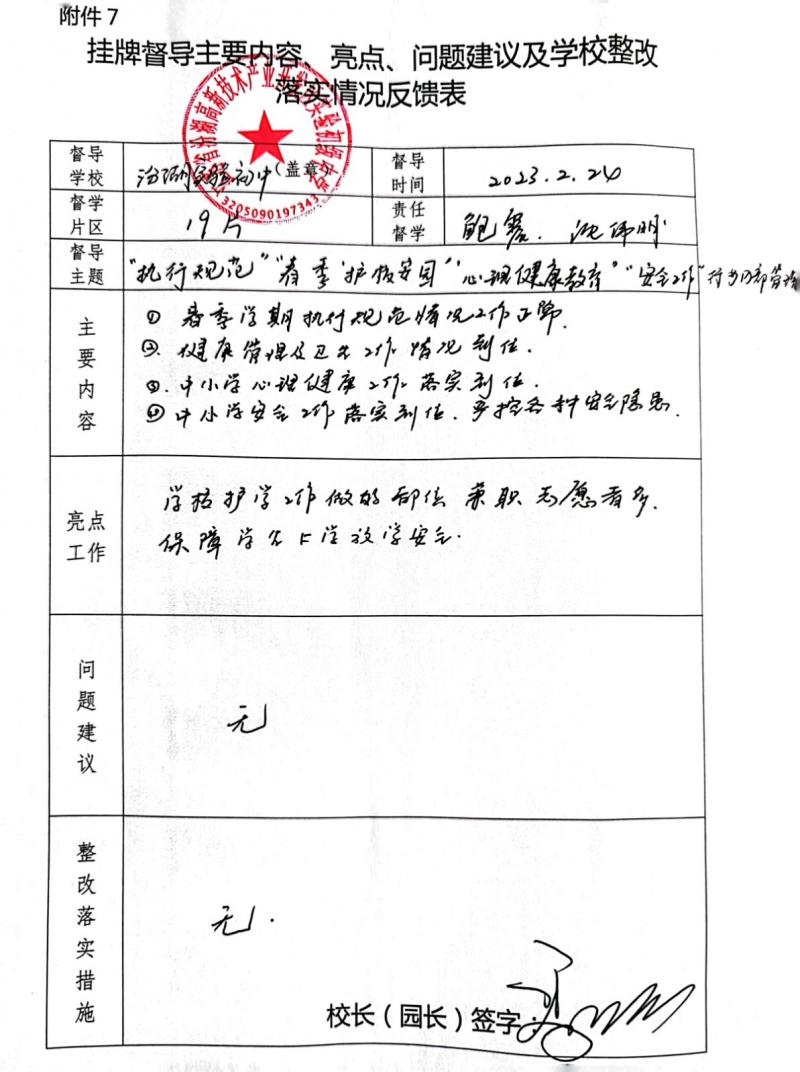 附件7
挂牌督导主要内容、亮点、问题建议及学校整改
落实情况反馈表
督导学校
汾湖实验初中(盖章)
督导时间
2023.2.24
3205090197343
督学片区
19片
责任督学
鲍 沈伟明
督导主题
"执行规范" "春季护校安园" "心理健康教育" "安全工作"
主要内容
① 春季学期执行规范情况工作正常.
②. 健康管理及卫生工作情况到位.
③. 中小学心理健康工作落实到位.
④ 中小学安全工作落实到位.严控各种安全隐患.
亮点工作
学校护学工作做的到位 兼职志愿者多.
保障学生上学放学安全.
问题建议
无
整改落实措施
无.
校长(园长)签字: